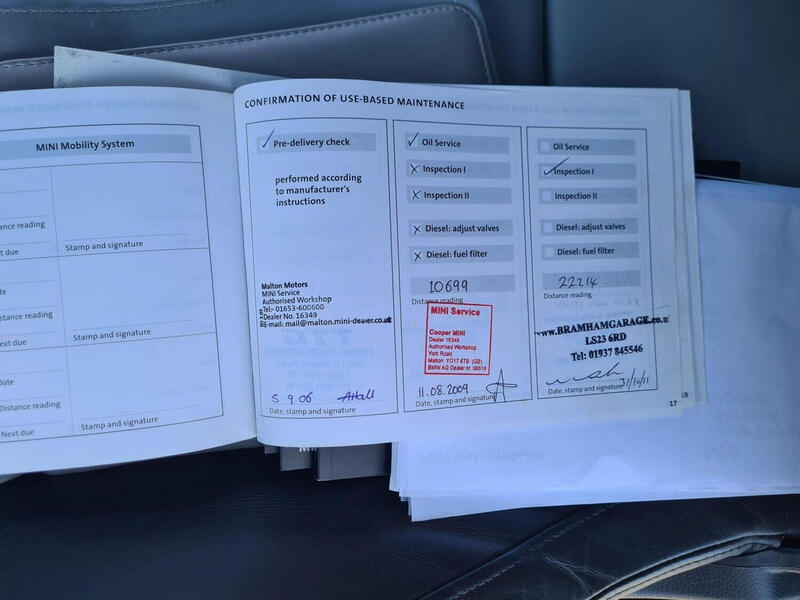 MINI Mobility System
Distance reading
Next due
Stamp and signature
Date
Distance reading
Next due
Stamp and signature
Date
Distance reading
Next due
Stamp and signature
CONFIRMATION OF USE-BASED MAINTENANCE
Pre-delivery check
performed according
to manufacturer's
instructions
Malton Motors
MINI Service
Authorised Workshop
Tel:- 01653-600600
Dealer No. 16349
E-mail: mail@malton.mini-dealer.co.uk
5-9.06
Date, stamp and signature
Oil Service
Inspection I
Inspection II
Diesel: adjust valves
Diesel: fuel filter
10699
Distance reading
MINI Service
Cooper MINI
Dealer 16349
Authorised Workshop
York Road
Malton YO17 6TB (GB)
BMW AG Dealer nr. 08618
11.08.2009
Date, stamp and signature
Oil Service
Inspection I
Inspection II
Diesel: adjust valves
Diesel: fuel filter
22214
Distance reading
www.BRAMHAMGARAGE.co.u
LS23 6RD
Tel: 01937 845546
31/10/11
Date, stamp and signature
17
19